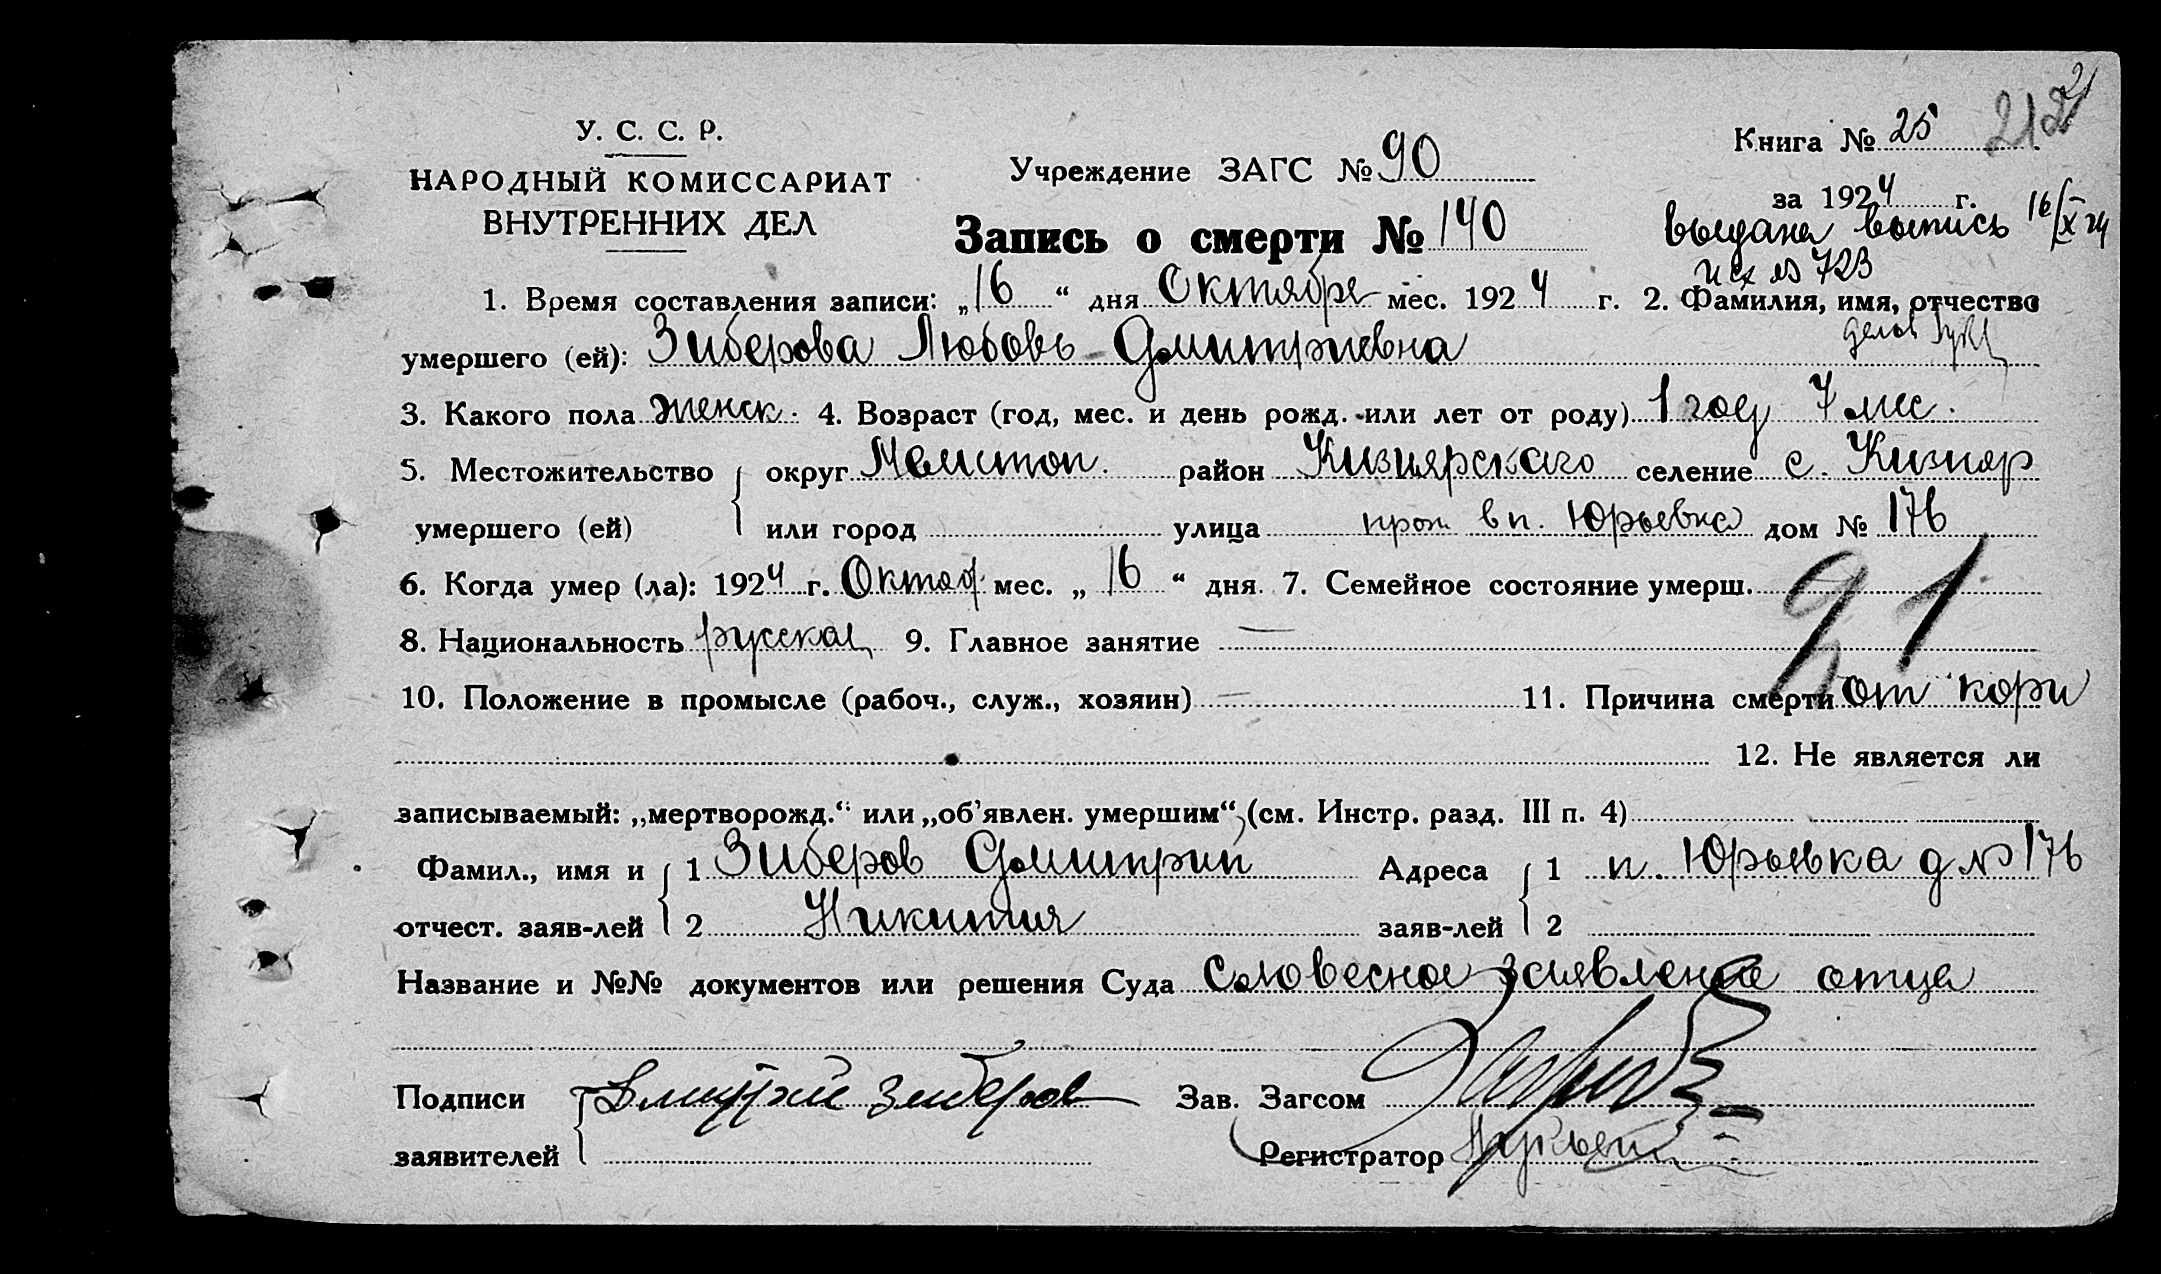 У. С. С. Р.
НАРОДНЫЙ КОМИССАРИАТ
ВНУТРЕННИХ ДЕЛ
Учреждение ЗАГС № 90
Книга № 25
21
за 1924 г.
Запись о смерти № 140
выдана выпись 16/X 24
исх № 723
1. Время составления записи: „16“ дня Октября мес. 1924 г. 2. Фамилия, имя, отчество
умершего (ей): Зиберова Любовь Дмитриевна
3. Какого пола женск. 4. Возраст (год, мес. и день рожд. или лет от роду) 1 год 7 мес.
5. Местожительство округ Мелитоп. район Кизиярскаго селение с. Кизияр
умершего (ей) или город улица прож в п. Юрьевка дом № 176
6. Когда умер (ла): 1924 г. Октяб. мес. „16“ дня. 7. Семейное состояние умерш.
21
8. Национальность русская 9. Главное занятие —
10. Положение в промысле (рабоч., служ., хозяин) — 11. Причина смерти от кори
12. Не является ли
записываемый: „мертворожд.“ или „об'явлен. умершим“ (см. Инстр. разд. III п. 4)
Фамил., имя и 1 Зиберов Дмитрий Адреса 1 п. Юрьевка д № 176
отчест. заяв-лей 2 Никитич заяв-лей 2
Название и №№ документов или решения Суда Словесное заявление отца
Подписи Дмитрий Зиберов Зав. Загсом
заявителей Регистратор